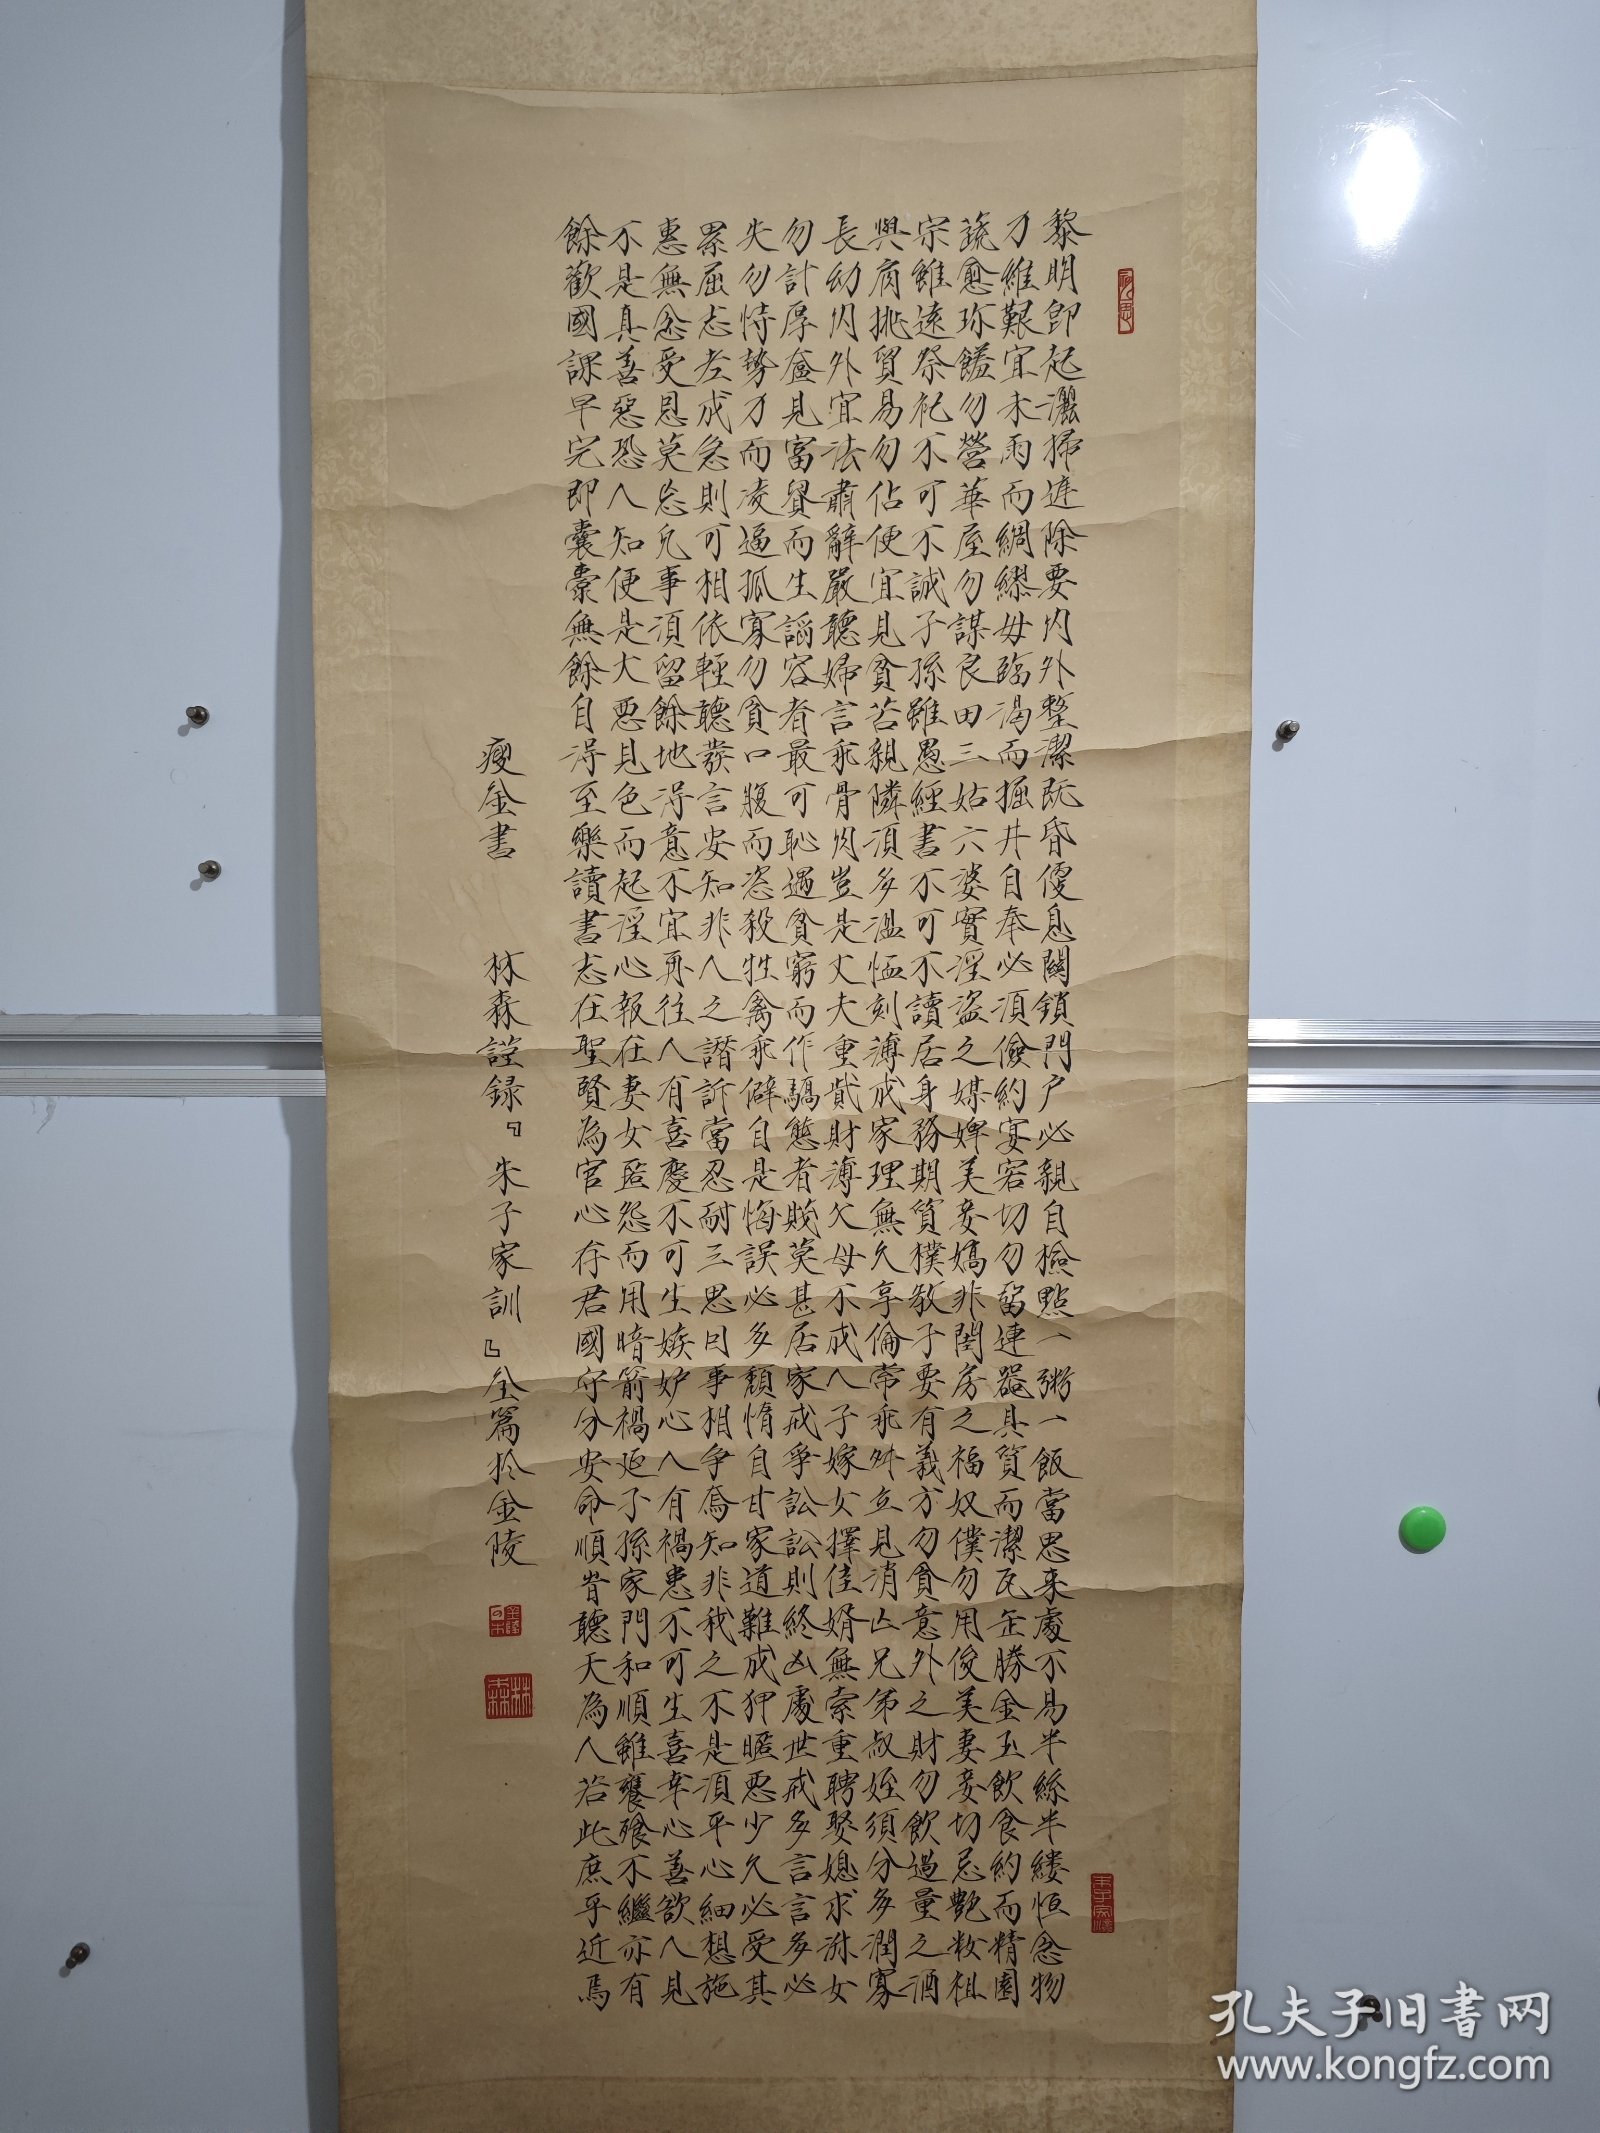 黎明即起灑掃庭除要內外整潔既昏便息關鎖門户必親自檢點一粥一飯當思来處不易半絲半縷恒念物
力維艱宜未雨而綢繆毋臨渴而掘井自奉必須儉約宴客切勿留連器具質而潔瓦缶勝金玉飲食約而精園
蔬愈珍饈勿營華屋勿謀良田三姑六婆實淫盗之媒婢美妾嬌非閨房之福奴僕勿用俊美妻妾切忌艷粧祖
宗雖遠祭祀不可不誠子孫雖愚經書不可不讀居身務期質樸教子要有義方勿貪意外之財勿飲過量之酒
與肩挑貿易勿佔便宜見貧苦親隣須多溫恤刻薄成家理無久享倫常乖舛立見消亡兄弟叔姪須分多潤寡
長幼內外宜法肅辭嚴聽婦言乖骨肉豈是丈夫重貲財薄父母不成人子嫁女擇佳婿無索重聘娶媳求淑女
勿計厚奩見富貴而生諂容者最可恥遇貧窮而作驕態者賤莫甚居家戒爭訟訟則終凶處世戒多言言多必
失勿恃勢力而凌逼孤寡勿貪口腹而恣殺牲禽乖僻自是悔誤必多頹惰自甘家道難成狎暱惡少久必受其
累屈志老成急則可相依輕聽發言安知非人之譖訴當忍耐三思因事相争焉知非我之不是須平心細想施
惠無念受恩莫忘凡事須留餘地得意不宜再往人有喜慶不可生嫉妒心人有禍患不可生喜幸心善欲人見
不是真善惡恐人知便是大惡見色而起淫心報在妻女匿怨而用暗箭禍延子孫家門和順雖饔飧不繼亦有
餘歡國課早完即囊橐無餘自得至樂讀書志在聖賢為官心存君國守分安命順時聽天為人若此庶乎近焉
瘦金書 林森謹録『朱子家訓』全篇於金陵
林森
朱子家訓
孔夫子旧书网
www.kongfz.com